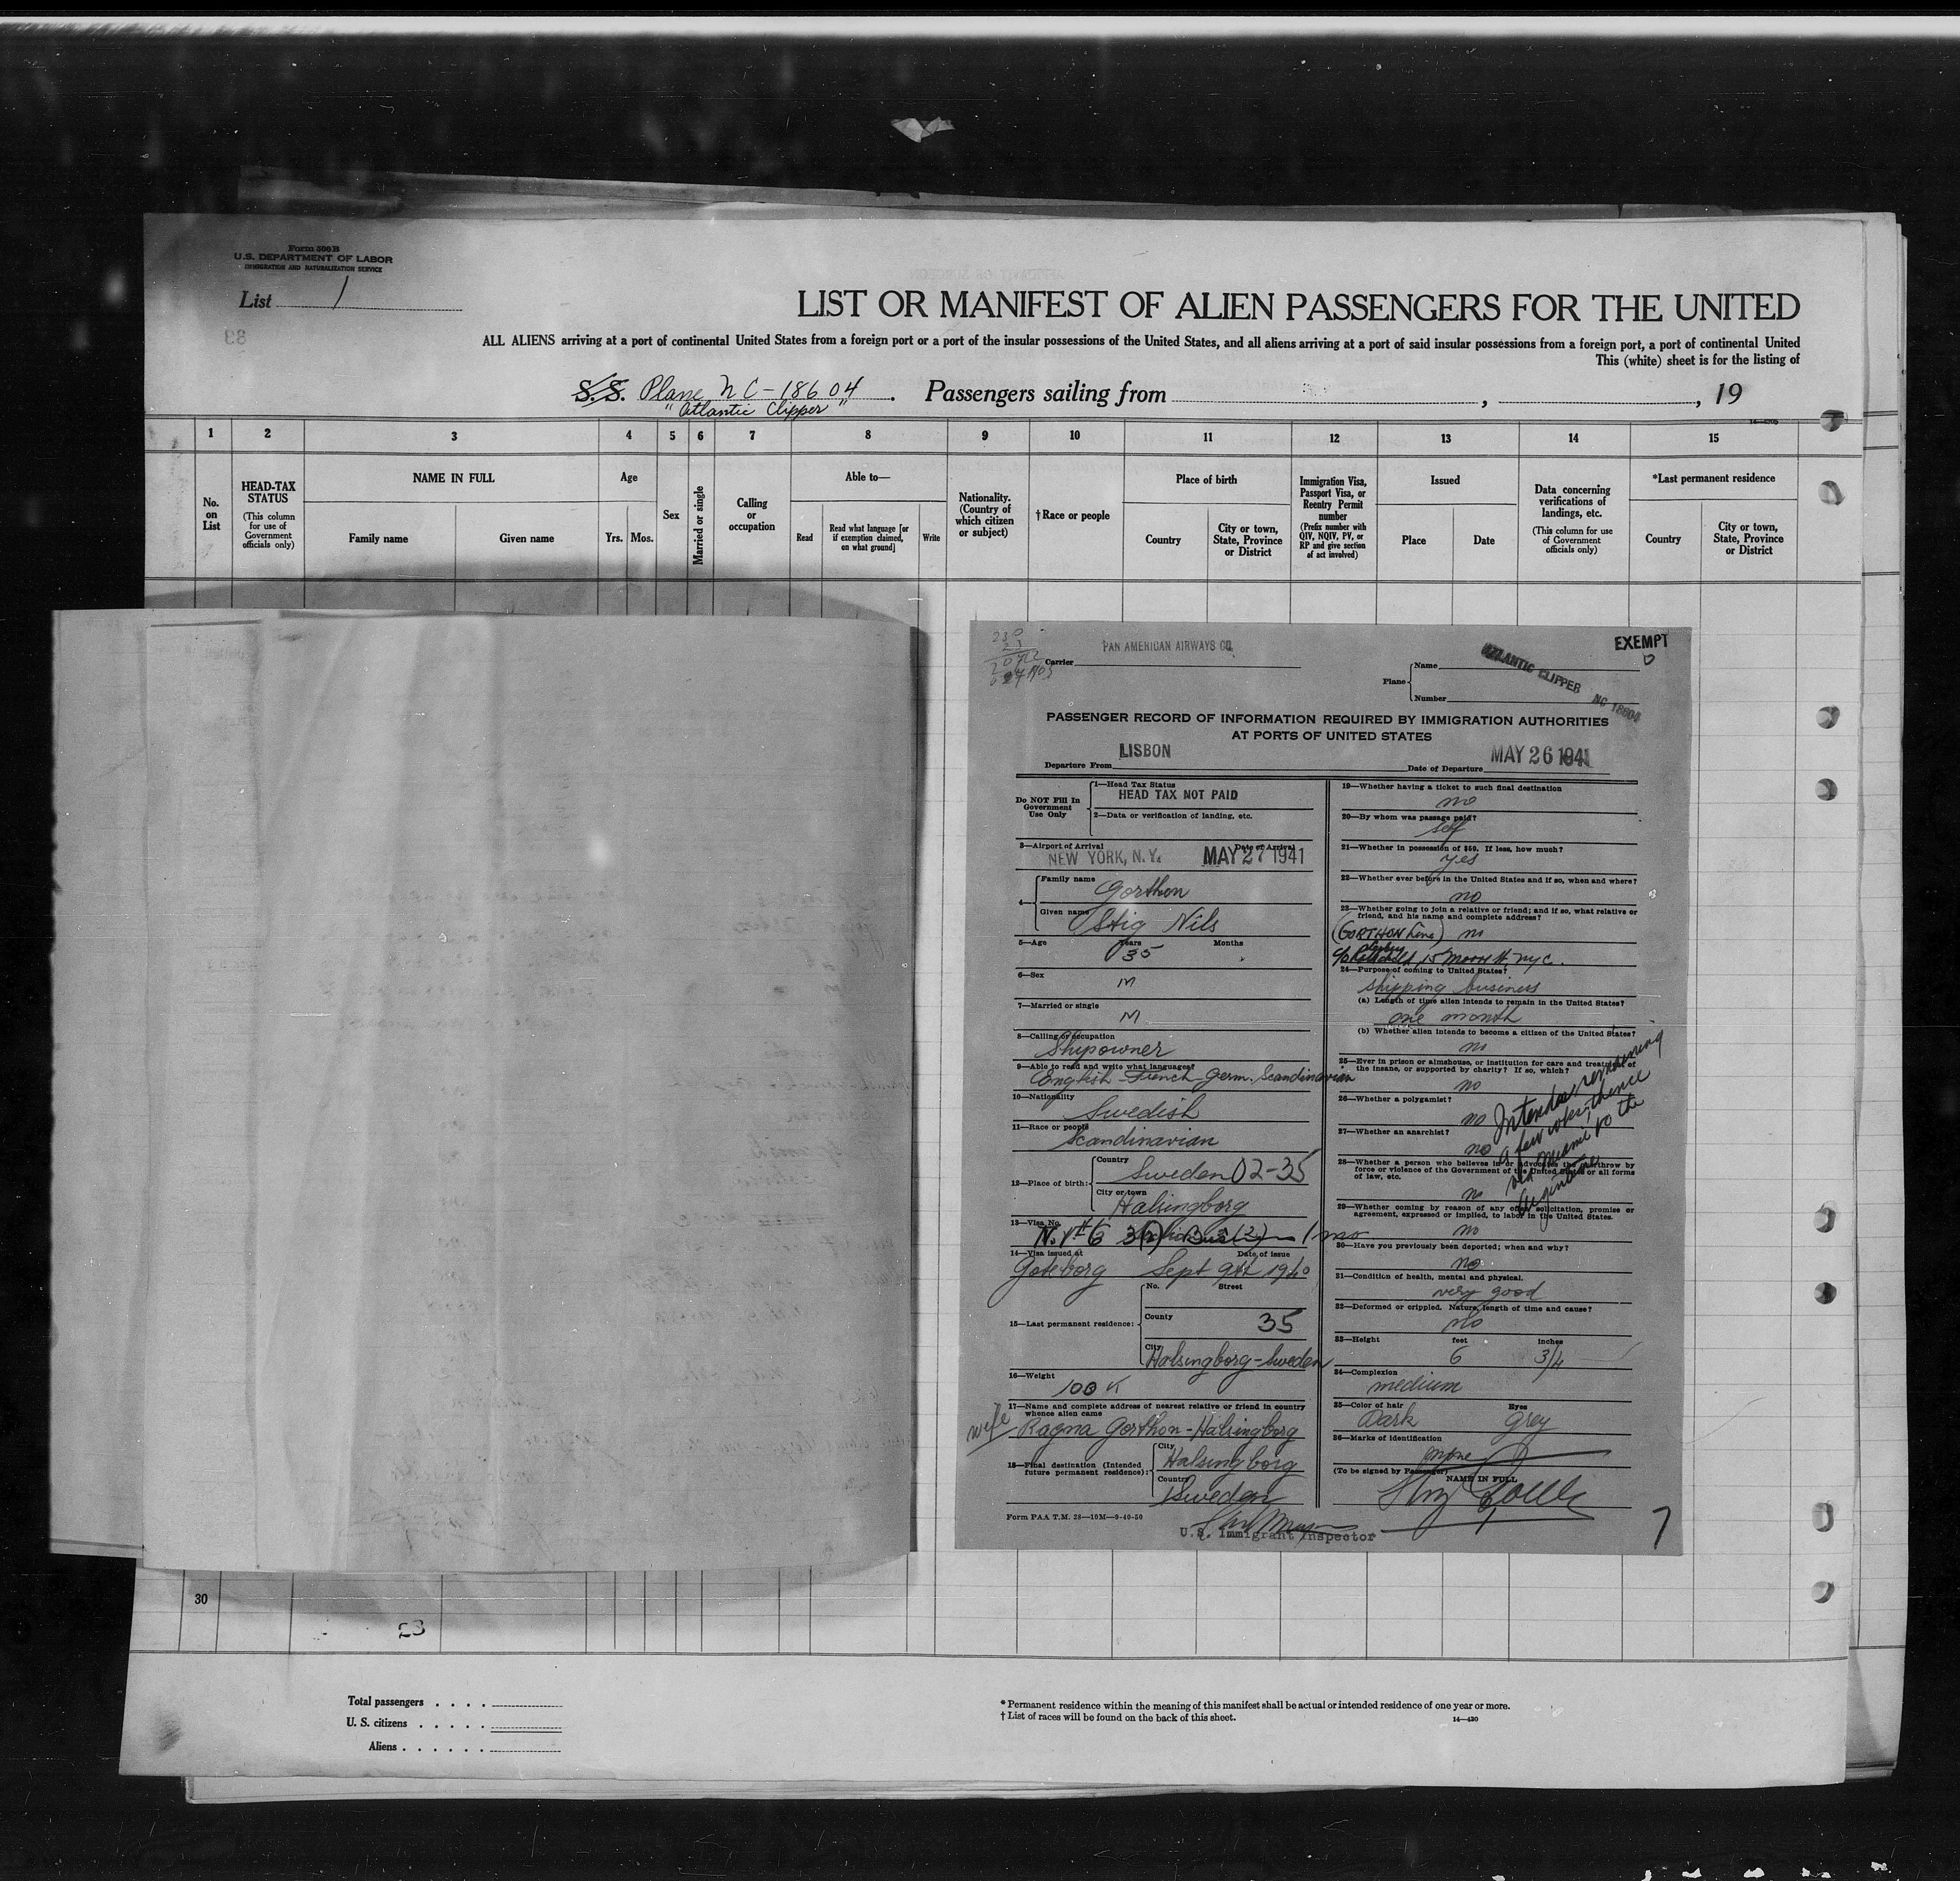 Form 500B
U.S. DEPARTMENT OF LABOR
IMMIGRATION AND NATURALIZATION SERVICE
List 1
LIST OR MANIFEST OF ALIEN PASSENGERS FOR THE UNITED
ALL ALIENS arriving at a port of continental United States from a foreign port or a port of the insular possessions of the United States, and all aliens arriving at a port of said insular possessions from a foreign port, a port of continental United
This (white) sheet is for the listing of
S.S. Plane NC-18604 . Passengers sailing from , , 19
"Atlantic Clipper"
1 2 3 4 5 6 7 8 9 10 11 12 13 14 15
No. on List
HEAD-TAX STATUS
(This column for use of Government officials only)
NAME IN FULL
Family name Given name
Age
Yrs. Mos.
Sex
Married or single
Calling or occupation
Able to—
Read
Read what language [or if exemption claimed, on what ground]
Write
Nationality. (Country of which citizen or subject)
†Race or people
Place of birth
Country
City or town, State, Province or District
Immigration Visa, Passport Visa, or Reentry Permit number
(Prefix number with QIV, NQIV, PV, or RP and give section of act involved)
Issued
Place Date
Data concerning verifications of landings, etc.
(This column for use of Government officials only)
*Last permanent residence
Country
City or town, State, Province or District
Carrier PAN AMERICAN AIRWAYS CO.
EXEMPT
Plane Name ATLANTIC CLIPPER
Number NC 18604
PASSENGER RECORD OF INFORMATION REQUIRED BY IMMIGRATION AUTHORITIES
AT PORTS OF UNITED STATES
Departure From LISBON Date of Departure MAY 26 1941
Do NOT Fill In Government Use Only
1—Head Tax Status
HEAD TAX NOT PAID
2—Data or verification of landing, etc.
3—Airport of Arrival Date of Arrival
NEW YORK, N.Y. MAY 27 1941
4— Family name Gorthon
Given name Stig Nils
5—Age Years 35 Months
6—Sex M
7—Married or single M
8—Calling or occupation
Shipowner
9—Able to read and write what languages?
English - French - Germ. Scandinavian
10—Nationality
Swedish
11—Race or people
Scandinavian
12—Place of birth: Country Sweden 02-35
City or town
Halsingborg
13—Visa No.
N.V # 6 3(2) 1 mo
14—Visa issued at Date of issue
Goteborg Sept 9th 1940
15—Last permanent residence: No. Street
County 35
City Halsingborg - Sweden
16—Weight
100 K
17—Name and complete address of nearest relative or friend in country whence alien came
wife Ragna Gorthon - Halsingborg
18—Final destination (Intended future permanent residence): City Halsingborg
Country
Sweden
Form PAA T.M. 28—10M—9-40-50
U.S. Immigrant Inspector
19—Whether having a ticket to such final destination
no
20—By whom was passage paid?
self
21—Whether in possession of $50. If less, how much?
yes
22—Whether ever before in the United States and if so, when and where?
no
23—Whether going to join a relative or friend; and if so, what relative or friend, and his name and complete address?
(GORTHON Line) no
c/o 15 Moore St, NYC.
24—Purpose of coming to United States?
shipping business
(a) Length of time alien intends to remain in the United States?
one month
(b) Whether alien intends to become a citizen of the United States?
no
25—Ever in prison or almshouse, or institution for care and treatment of the insane, or supported by charity? If so, which?
no
26—Whether a polygamist?
no
27—Whether an anarchist?
no
28—Whether a person who believes in or advocates the overthrow by force or violence of the Government of the United States or all forms of law, etc.
no
Intends remaining
a few wks, thence
via Miami to the
Argentine
29—Whether coming by reason of any offer, solicitation, promise or agreement, expressed or implied, to labor in the United States.
no
30—Have you previously been deported; when and why?
no
31—Condition of health, mental and physical.
very good
32—Deformed or crippled. Nature, length of time and cause?
no
33—Height feet 6 inches 3/4
34—Complexion
medium
35—Color of hair Eyes
Dark Grey
36—Marks of identification
none
(To be signed by Passenger) NAME IN FULL
7
30
23
Total passengers . . . .
U. S. citizens . . . . .
Aliens . . . . . .
* Permanent residence within the meaning of this manifest shall be actual or intended residence of one year or more.
† List of races will be found on the back of this sheet. 14—430